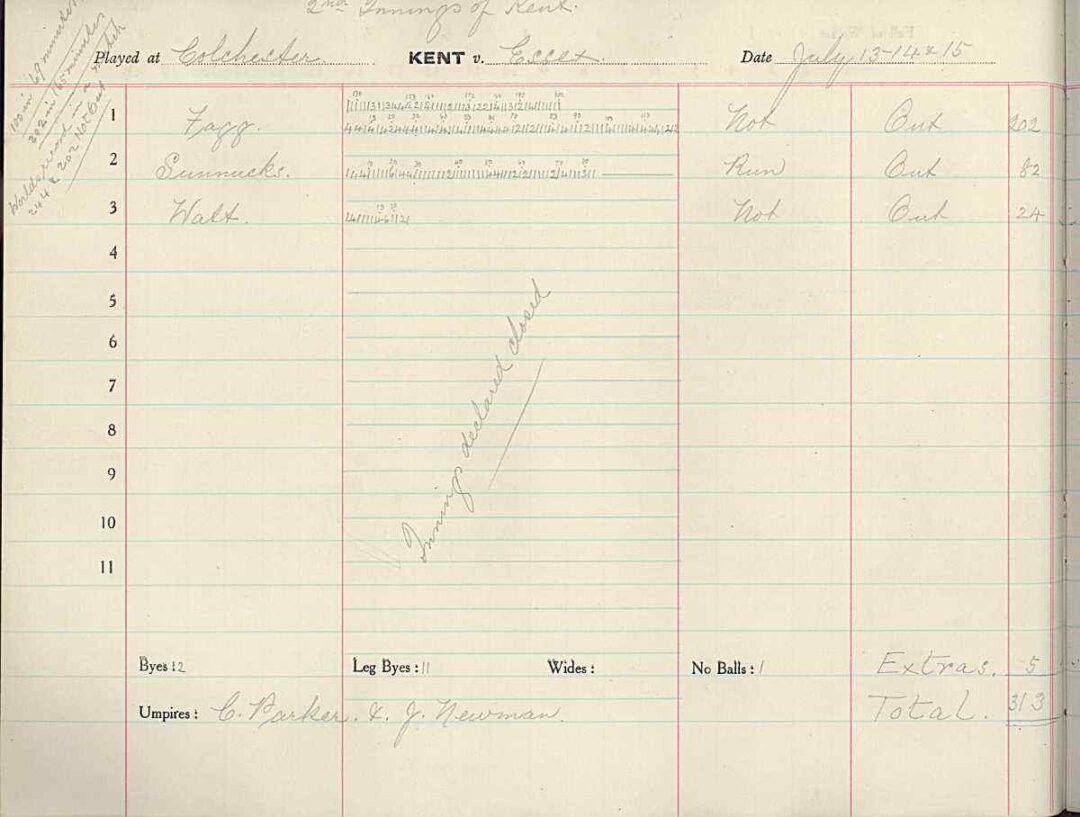 2nd Innings of Kent.
Played at Colchester. KENT v. Essex. Date July 13-14 & 15
100 in 69 minutes
202 in 165 minutes
World's record in a match
244 & 202 Not Out
1 Fagg. Not Out 202
2 Sunnucks. Run Out 82
3 Walt. Not Out 24
4
5
6
7
8
9
10
11
Innings declared closed
Byes: 12 Leg Byes: 11 Wides: No Balls: 1 Extras. 5
Umpires: C. Parker. & J. Newman. Total. 313